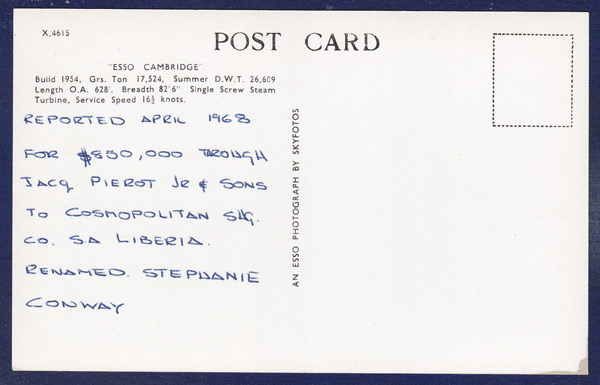 X.4615
POST CARD
"ESSO CAMBRIDGE"
Build 1954, Grs. Ton 17,524, Summer D.W.T. 26,609
Length O.A. 628', Breadth 82'6" Single Screw Steam
Turbine, Service Speed 16½ knots.
REPORTED APRIL 1968
FOR $850,000 THROUGH
JACQ PIEROT JR & SONS
TO COSMOPOLITAN SHG.
CO. SA LIBERIA.
RENAMED. STEPHANIE
CONWAY
AN ESSO PHOTOGRAPH BY SKYFOTOS